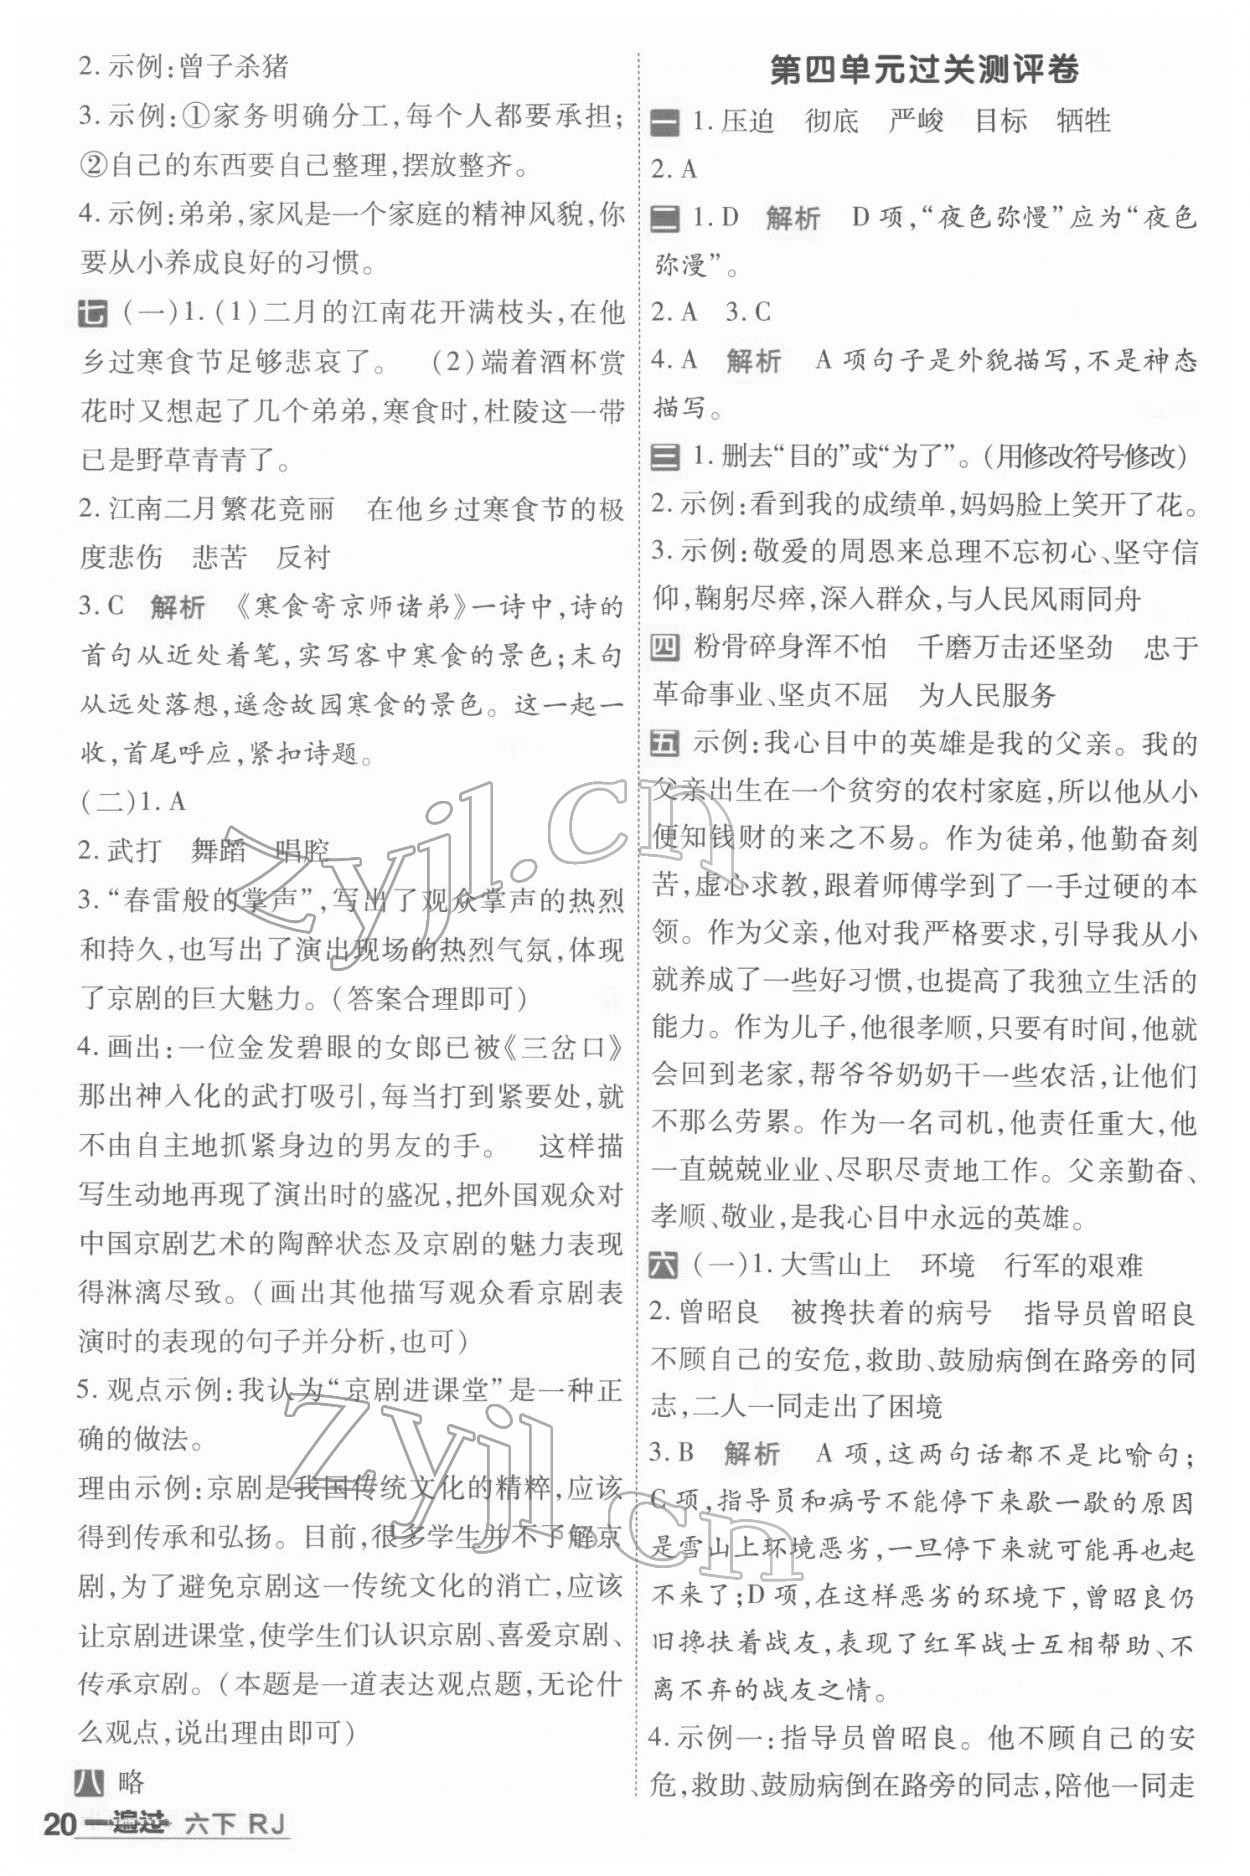 2. 示例:曾子杀猪
3. 示例:①家务明确分工,每个人都要承担;
②自己的东西要自己整理,摆放整齐。
4. 示例:弟弟,家风是一个家庭的精神风貌,你
要从小养成良好的习惯。
七 (一)1. (1)二月的江南花开满枝头,在他
乡过寒食节足够悲哀了。 (2)端着酒杯赏
花时又想起了几个弟弟,寒食时,杜陵这一带
已是野草青青了。
2. 江南二月繁花竞丽 在他乡过寒食节的极
度悲伤 悲苦 反衬
3. C 解析 《寒食寄京师诸弟》一诗中,诗的
首句从近处着笔,实写客中寒食的景色;末句
从远处落想,遥念故园寒食的景色。这一起一
收,首尾呼应,紧扣诗题。
(二)1. A
2. 武打 舞蹈 唱腔
3. “春雷般的掌声”,写出了观众掌声的热烈
和持久,也写出了演出现场的热烈气氛,体现
了京剧的巨大魅力。(答案合理即可)
4. 画出:一位金发碧眼的女郎已被《三岔口》
那出神入化的武打吸引,每当打到紧要处,就
不由自主地抓紧身边的男友的手。 这样描
写生动地再现了演出时的盛况,把外国观众对
中国京剧艺术的陶醉状态及京剧的魅力表现
得淋漓尽致。(画出其他描写观众看京剧表
演时的表现的句子并分析,也可)
5. 观点示例:我认为“京剧进课堂”是一种正
确的做法。
理由示例:京剧是我国传统文化的精粹,应该
得到传承和弘扬。目前,很多学生并不了解京
剧,为了避免京剧这一传统文化的消亡,应该
让京剧进课堂,使学生们认识京剧、喜爱京剧、
传承京剧。(本题是一道表达观点题,无论什
么观点,说出理由即可)
八 略
第四单元过关测评卷
一 1. 压迫 彻底 严峻 目标 牺牲
2. A
二 1. D 解析 D 项,“夜色弥慢”应为“夜色
弥漫”。
2. A 3. C
4. A 解析 A 项句子是外貌描写,不是神态
描写。
三 1. 删去“目的”或“为了”。(用修改符号修改)
2. 示例:看到我的成绩单,妈妈脸上笑开了花。
3. 示例:敬爱的周恩来总理不忘初心、坚守信
仰,鞠躬尽瘁,深入群众,与人民风雨同舟
四 粉骨碎身浑不怕 千磨万击还坚劲 忠于
革命事业、坚贞不屈 为人民服务
五 示例:我心目中的英雄是我的父亲。我的
父亲出生在一个贫穷的农村家庭,所以他从小
便知钱财的来之不易。作为徒弟,他勤奋刻
苦,虚心求教,跟着师傅学到了一手过硬的本
领。作为父亲,他对我严格要求,引导我从小
就养成了一些好习惯,也提高了我独立生活的
能力。作为儿子,他很孝顺,只要有时间,他就
会回到老家,帮爷爷奶奶干一些农活,让他们
不那么劳累。作为一名司机,他责任重大,他
一直兢兢业业、尽职尽责地工作。父亲勤奋、
孝顺、敬业,是我心目中永远的英雄。
六 (一)1. 大雪山上 环境 行军的艰难
2. 曾昭良 被搀扶着的病号 指导员曾昭良
不顾自己的安危,救助、鼓励病倒在路旁的同
志,二人一同走出了困境
3. B 解析 A 项,这两句话都不是比喻句;
C 项,指导员和病号不能停下来歇一歇的原因
是雪山上环境恶劣,一旦停下来就可能再也起
不来了;D 项,在这样恶劣的环境下,曾昭良仍
旧搀扶着战友,表现了红军战士互相帮助、不
离不弃的战友之情。
4. 示例一:指导员曾昭良。他不顾自己的安
危,救助、鼓励病倒在路旁的同志,陪他一同走
20 一遍过 六下 RJ
zyjl.cn
zyjl.cn